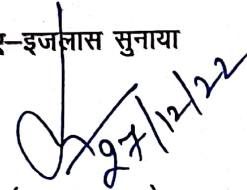 -इजलास सुनाया
27/12/22